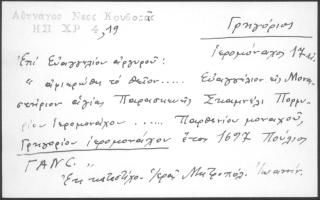 Αθηναγορ Νεος Κουβαρᾶς
ΗΠ ΧΡ 4, 19
Γρηγόριος
ἱερομόναχος 17 αἰ.
Ἐπί Εὐαγγελίου ἀργυροῦ:
"ἀφιερώθη τό θεῖον..... Εὐαγγέλιον εἰς Μονα-
στήριον ἁγίας Παρασκευῆς Σκαμνέλι Πορφυ-
ρίου ἱερομονάχου ...... Παρθενίου μοναχοῦ,
Γρηγορίου ἱερομονάχου ἔτος 1697 Ἰούλιος
ΓΑΝC. "
Ἐκ κατεστίχου Ἱερᾶς Μητροπόλ. Ἰωαννίν.